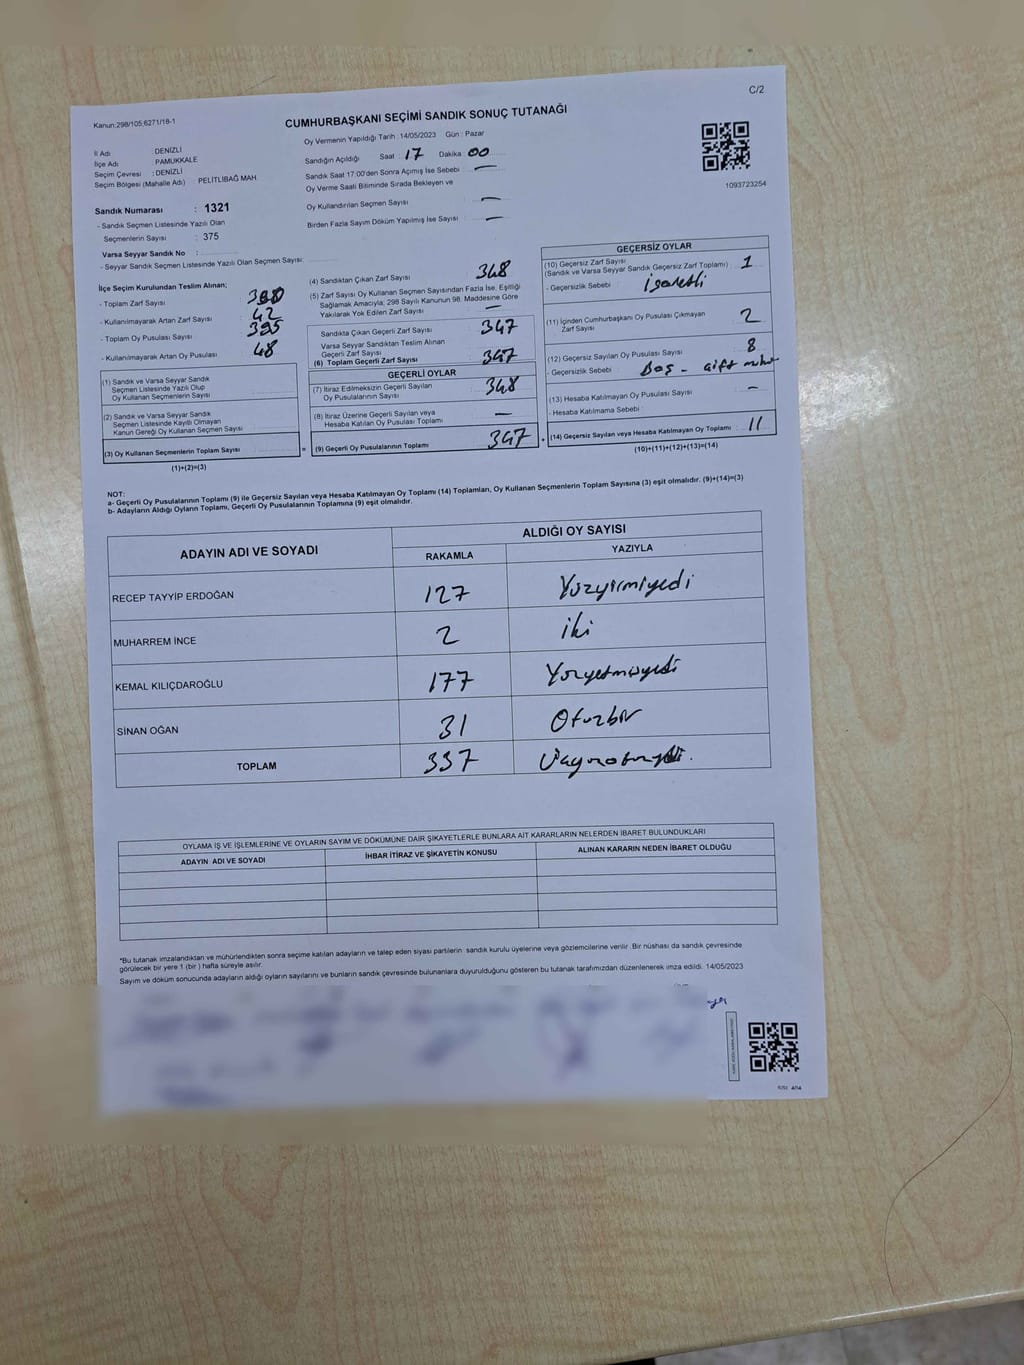 C/2
Kanun:298/105;6271/18-1
CUMHURBAŞKANI SEÇİMİ SANDIK SONUÇ TUTANAĞI
Oy Vermenin Yapıldığı Tarih : 14/05/2023 Gün : Pazar
İl Adı : DENİZLİ
İlçe Adı : PAMUKKALE
Seçim Çevresi : DENİZLİ
Seçim Bölgesi (Mahalle Adı) : PELİTLİBAĞ MAH.
Sandık Numarası : 1321
- Sandık Seçmen Listesinde Yazılı Olan
Seçmenlerin Sayısı : 375
Varsa Seyyar Sandık No :
- Seyyar Sandık Seçmen Listesinde Yazılı Olan Seçmen Sayısı:
Sandığın Açıldığı Saat : 17 Dakika : 00
Sandık Saat 17.00'den Sonra Açımış İse Sebebi : —
Oy Verme Saati Bitiminde Sırada Bekleyen ve
Oy Kullandırılan Seçmen Sayısı : —
Birden Fazla Sayım Döküm Yapılmış İse Sayısı : —
1093723254
İlçe Seçim Kurulundan Teslim Alınan;
- Toplam Zarf Sayısı
- Kullanılmayarak Artan Zarf Sayısı : 42
- Toplam Oy Pusulası Sayısı : 395
- Kullanılmayarak Artan Oy Pusulası : 48
(1) Sandık ve Varsa Seyyar Sandık
Seçmen Listesinde Yazılı Olup
Oy Kullanan Seçmenlerin Sayısı
(2) Sandık ve Varsa Seyyar Sandık
Seçmen Listesinde Kayıtlı Olmayan
Kanun Gereği Oy Kullanan Seçmen Sayısı
(3) Oy Kullanan Seçmenlerin Toplam Sayısı :
(1)+(2)=(3)
(4) Sandıktan Çıkan Zarf Sayısı : 348
(5) Zarf Sayısı Oy Kullanan Seçmen Sayısından Fazla İse, Eşitliği
Sağlamak Amacıyla; 298 Sayılı Kanunun 98. Maddesine Göre
Yakılarak Yok Edilen Zarf Sayısı : —
Sandıkta Çıkan Geçerli Zarf Sayısı : 347
Varsa Seyyar Sandıktan Teslim Alınan
Geçerli Zarf Sayısı
(6) Toplam Geçerli Zarf Sayısı : 347
GEÇERLİ OYLAR
(7) İtiraz Edilmeksizin Geçerli Sayılan
Oy Pusulalarının Sayısı : 348
(8) İtiraz Üzerine Geçerli Sayılan veya
Hesaba Katılan Oy Pusulası Toplamı : —
= (9) Geçerli Oy Pusulalarının Toplamı : 347
GEÇERSİZ OYLAR
(10) Geçersiz Zarf Sayısı
(Sandık ve Varsa Seyyar Sandık Geçersiz Zarf Toplamı) : 1
- Geçersizlik Sebebi : işaretli
(11) İçinden Cumhurbaşkanı Oy Pusulası Çıkmayan
Zarf Sayısı : 2
(12) Geçersiz Sayılan Oy Pusulası Sayısı : 8
- Geçersizlik Sebebi : Boş - çift mühür
(13) Hesaba Katılmayan Oy Pusulası Sayısı : —
- Hesaba Katılmama Sebebi
+ (14) Geçersiz Sayılan veya Hesaba Katılmayan Oy Toplamı : 11
(10)+(11)+(12)+(13)=(14)
NOT:
a- Geçerli Oy Pusulalarının Toplamı (9) ile Geçersiz Sayılan veya Hesaba Katılmayan Oy Toplamı (14) Toplamları, Oy Kullanan Seçmenlerin Toplam Sayısına (3) eşit olmalıdır. (9)+(14)=(3)
b- Adayların Aldığı Oyların Toplamı, Geçerli Oy Pusulalarının Toplamına (9) eşit olmalıdır.
ADAYIN ADI VE SOYADI
ALDIĞI OY SAYISI
RAKAMLA YAZIYLA
RECEP TAYYİP ERDOĞAN 127 Yüzyirmiyedi
MUHARREM İNCE 2 iki
KEMAL KILIÇDAROĞLU 177 Yüzyetmişyedi
SİNAN OĞAN 31 Otuzbir
TOPLAM 337
OYLAMA İŞ VE İŞLEMLERİNE VE OYLARIN SAYIM VE DÖKÜMÜNE DAİR ŞİKAYETLERLE BUNLARA AİT KARARLARIN NELERDEN İBARET BULUNDUKLARI
ADAYIN ADI VE SOYADI İHBAR İTİRAZ VE ŞİKAYETİN KONUSU ALINAN KARARIN NEDEN İBARET OLDUĞU
*Bu tutanak imzalandıktan ve mühürlendikten sonra seçime katılan adayların ve talep eden siyasi partilerin sandık kurulu üyelerine veya gözlemcilerine verilir. Bir nüshası da sandık çevresinde
görülecek bir yere 1 (bir ) hafta süreyle asılır.
Sayım ve döküm sonucunda adayların aldığı oyların sayılarını ve bunların sandık çevresinde bulunanlara duyurulduğunu gösteren bu tutanak tarafımızdan düzenlenerek imza edildi. 14/05/2023